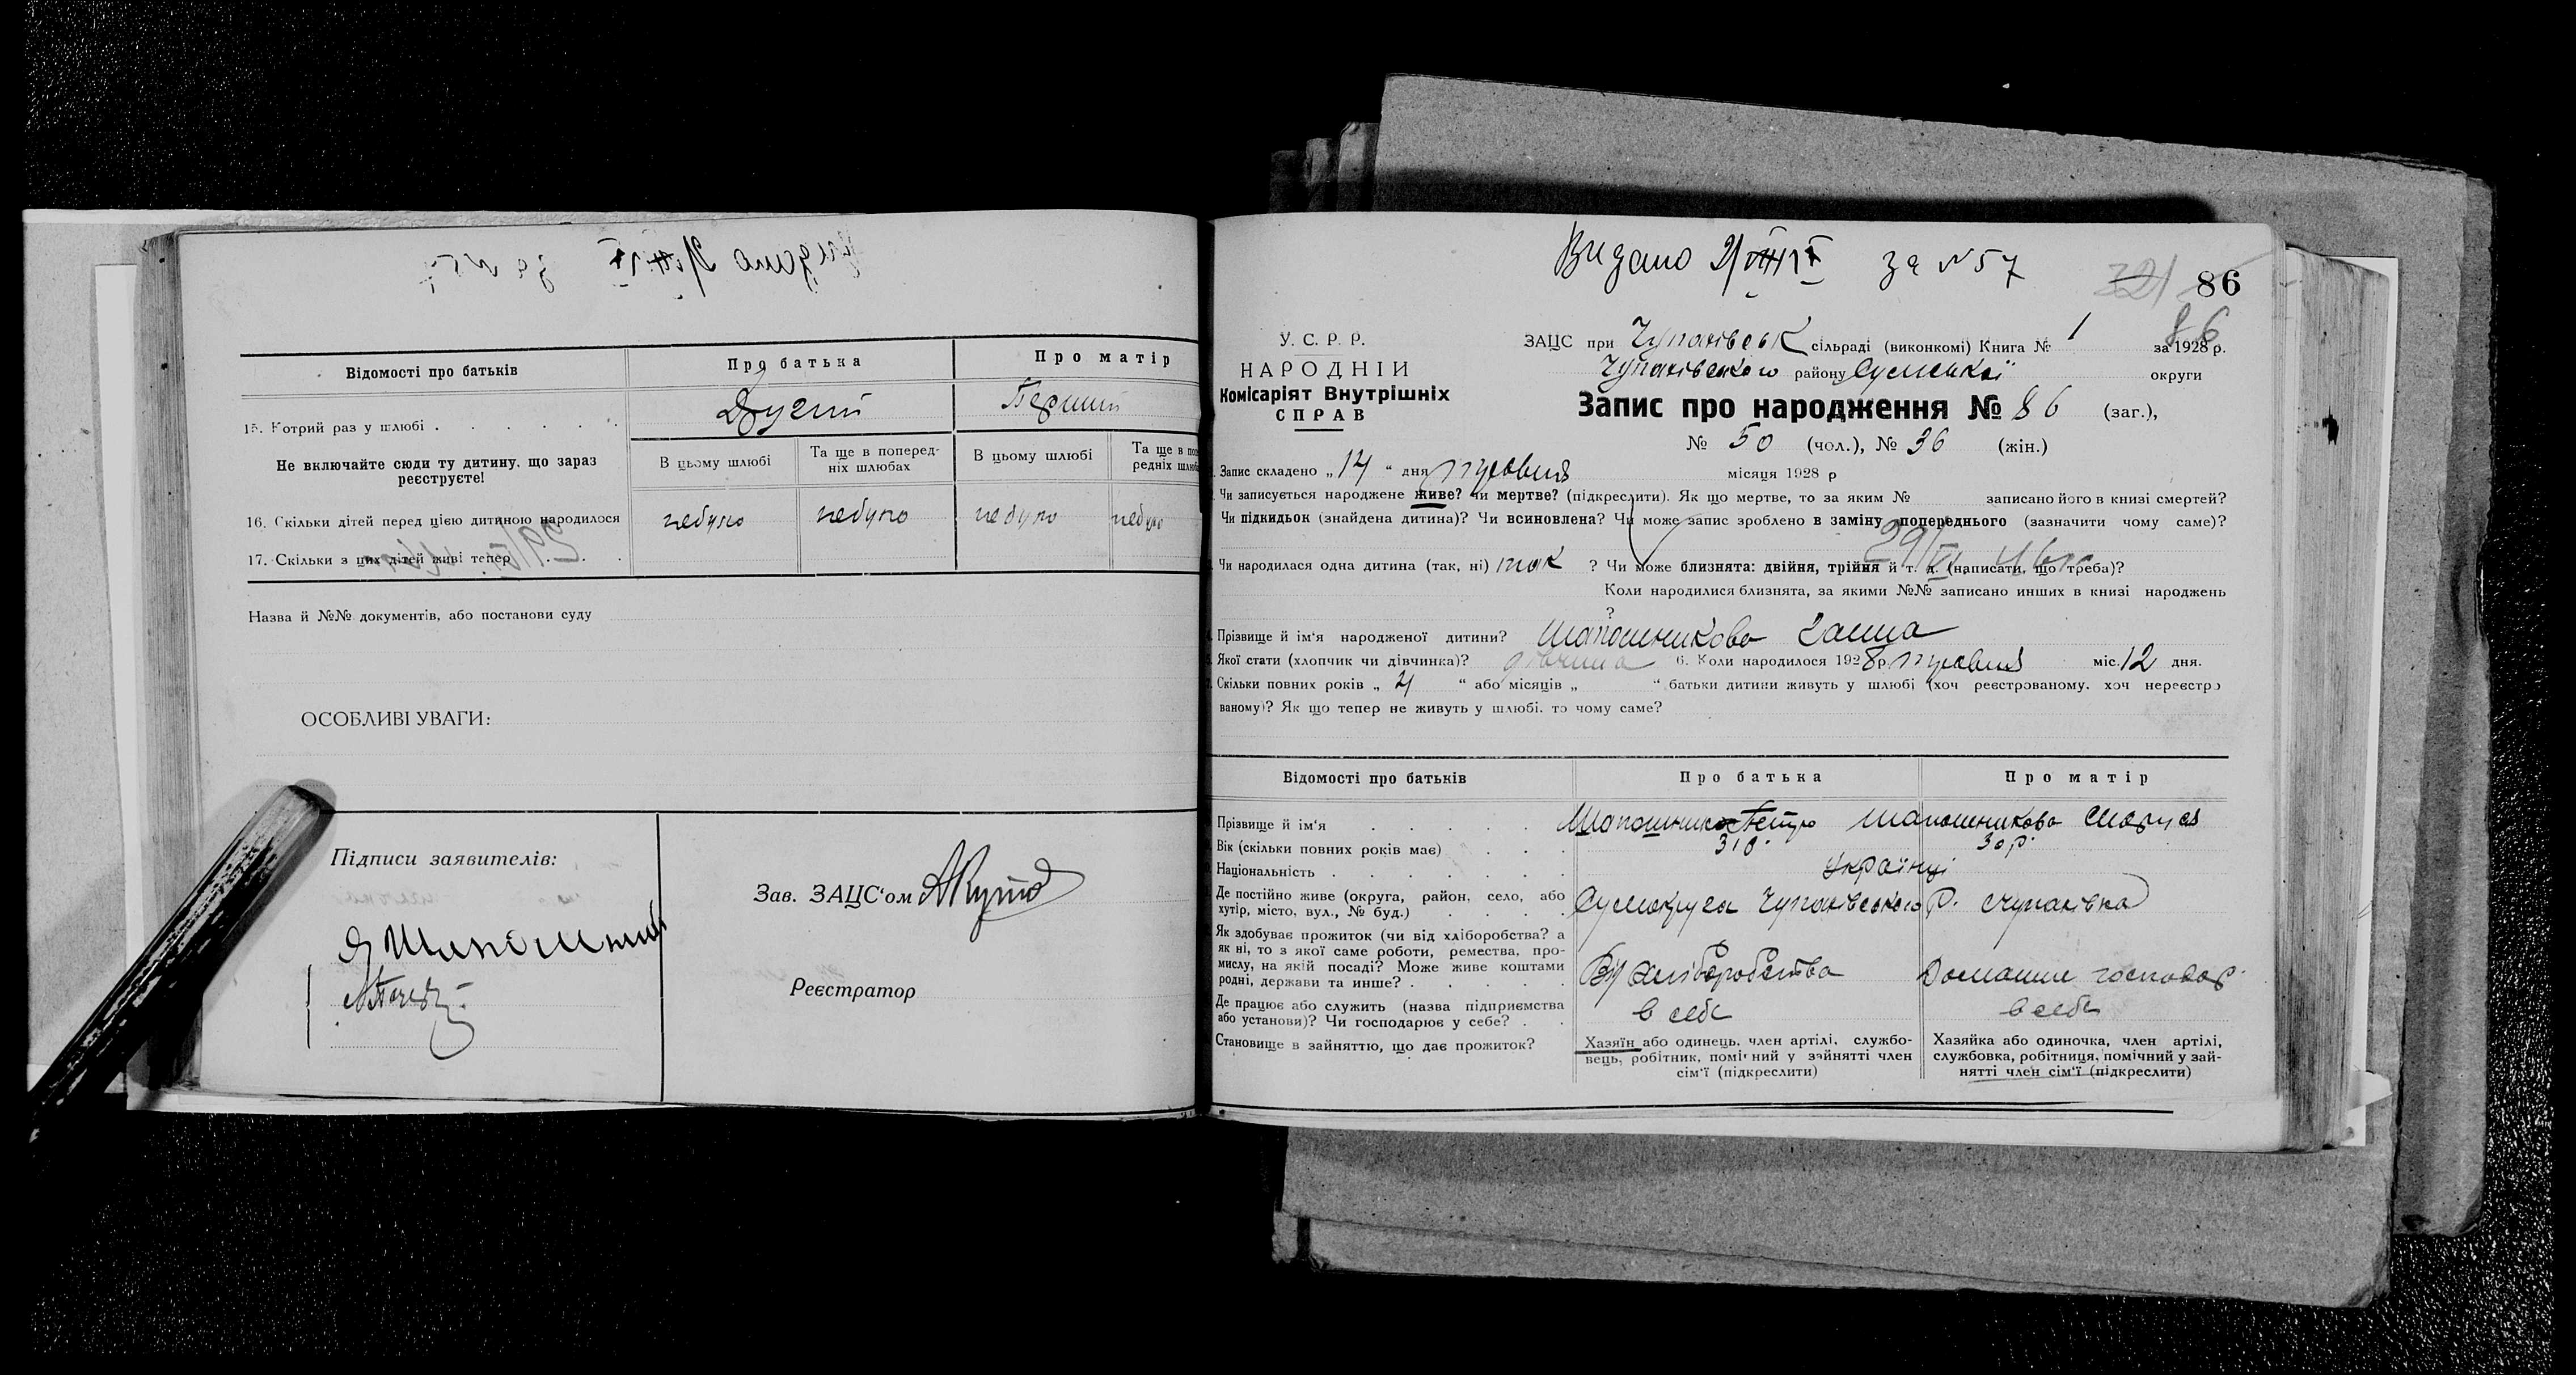 Відомості про батьків
Про батька
Про матір
15. Котрий раз у шлюбі . . . . . .
Другий
Перший
Не включайте сюди ту дитину, що зараз
реєструєте!
В цьому шлюбі
Та ще в поперед-
ніх шлюбах
В цьому шлюбі
Та ще в поп
редніх шлюба
16. Скільки дітей перед цією дитиною народилося
небуло
небуло
небуло
небуло
17. Скільки з цих дітей живі тепер . . .
Назва й №№ документів, або постанови суду
ОСОБЛИВІ УВАГИ:
Підписи заявителів:
Зав. ЗАЦС'ом
Реєстратор
Видано за №57
321 86
86
У. С. Р. Р.
НАРОДНІЙ
Комісаріят Внутрішніх
СПРАВ
ЗАЦС при Чупахівськ сільраді (виконкомі) Книга № 1 за 1928 р.
Чупахівського району Сумської округи
Запис про народження № 86 (заг.),
№ 50 (чол.), № 36 (жін.)
Запис складено „14“ дня травня місяця 1928 р
Чи записується народжене живе? чи мертве? (підкреслити). Як що мертве, то за яким № записано його в книзі смертей?
Чи підкидьок (знайдена дитина)? Чи всиновлена? Чи може запис зроблено в заміну попереднього (зазначити чому саме)?
Чи народилася одна дитина (так, ні) так ? Чи може близнята: двійня, трійня й т. д. (написати, що треба)?
Коли народилися близнята, за якими №№ записано инших в книзі народжень
?
Прізвище й ім'я народженої дитини? Шапошникова Ганна
Якої стати (хлопчик чи дівчинка)? дівчина 6. Коли народилося 1928 р. травня міс. 12 дня.
Скільки повних років „ 4 “ або місяців „ “ батьки дитини живуть у шлюбі (хоч реєстрованому, хоч нереєстро
ваному)? Як що тепер не живуть у шлюбі, то чому саме?
Відомості про батьків
Про батька
Про матір
Прізвище й ім'я . . . . .
Шапошник Петро
Шапошникова Мария
Вік (скільки повних років має) . . .
31 р.
30 р.
Національність . . . . . . .
Українці
Де постійно живе (округа, район, село, або
хутір, місто, вул., № буд.) . . . .
Сумокруга Чупахівського Р. с Чупахівка
Як здобуває прожиток (чи від хліборобства? а
як ні, то з якої саме роботи, ремества, про-
мислу, на якій посаді? Може живе коштами
родні, держави та инше? . . . . .
Від хліборобства
Домашнє господар.
Де працює або служить (назва підприємства
або установи)? Чи господарює у себе? . .
в себе
в себе
Становище в зайняттю, що дає прожиток?
Хазяїн або одинець, член артілі, службо-
вець, робітник, помічний у зайнятті член
сім'ї (підкреслити)
Хазяйка або одиночка, член артілі,
службовка, робітниця, помічний у зай-
нятті член сім'ї (підкреслити)